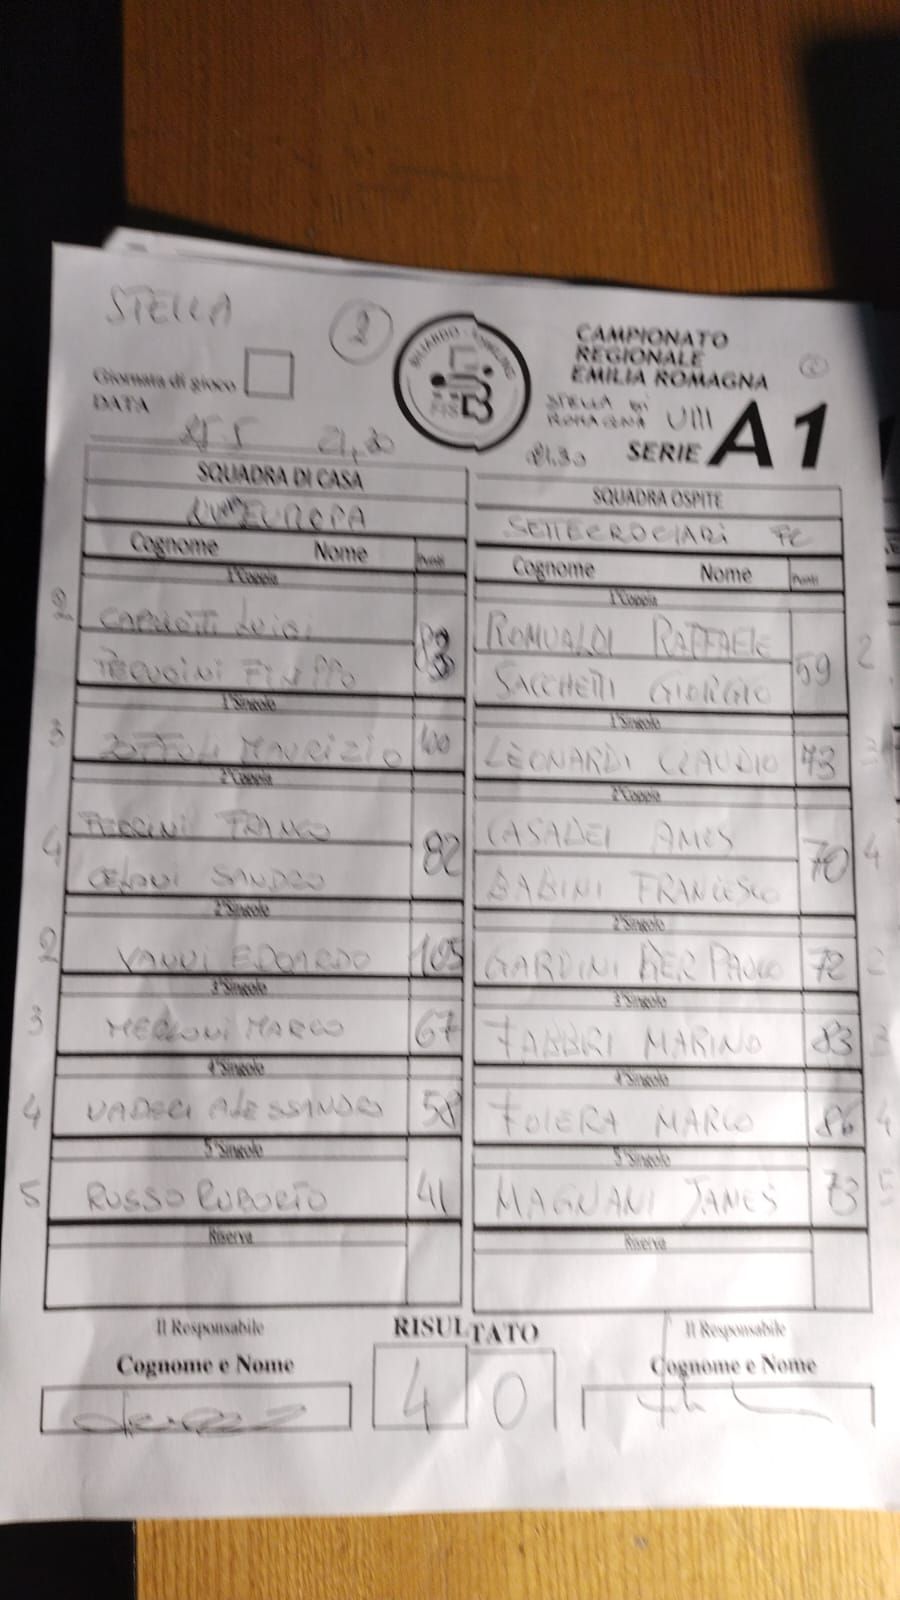 STELLA
2
CAMPIONATO
REGIONALE
EMILIA ROMAGNA
Giornata di gioco
DATA
25.5 21,30
STELLA DI
ROMAGNA
21.30
SERIE A1
SQUADRA DI CASA
EUROPA
SQUADRA OSPITE
SETTECROCIARI FC
Cognome Nome Punti
Cognome Nome Punti
1°Coppia
2
LUIGI
FILIPPO
83
1°Coppia
ROMUALDI RAFFAELE
SACCHETTI GIORGIO
59 2
1°Singolo
3 MAURIZIO 100
1°Singolo
LEONARDI CLAUDIO 73 3
2°Coppia
4
FRANCO
CELONI SANDRO
82
2°Coppia
CASADEI AMES
BABINI FRANCESCO
70 4
2°Singolo
2 VANDI EDOARDO 105
2°Singolo
GARDINI PIER PAOLO 72 2
3°Singolo
3 MARCO 67
3°Singolo
FABBRI MARINO 83 3
4°Singolo
4 ALESSANDRO 58
4°Singolo
FOIERA MARCO 86 4
5°Singolo
5 RUSSO ROBERTO 41
5°Singolo
MAGNANI JAMES 73 5
Riserva
Riserva
Il Responsabile
Cognome e Nome
RISULTATO
4 0
Il Responsabile
Cognome e Nome